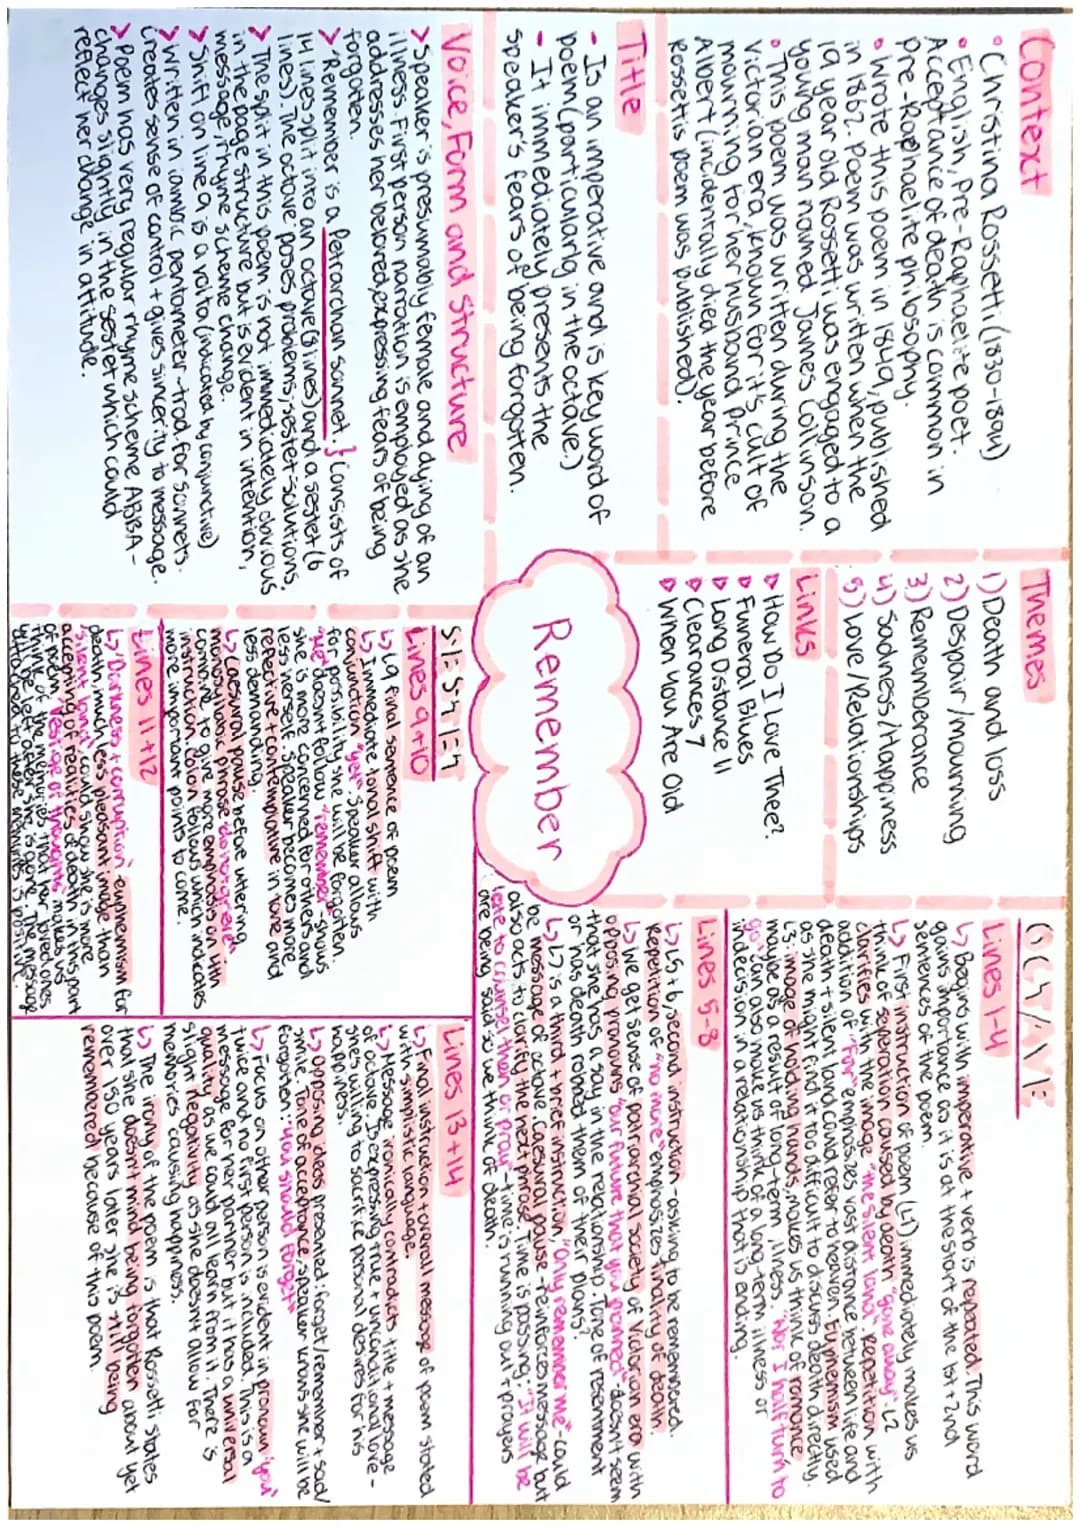 Context
• Christina Rossetti (1830-1894)
• English, Pre-Raphaelite poet.
Acceptance of death is common in
Pre-Raphaelite philosophy.
• Wrote this poem in 1849, published
in 1862. Poem was written when the
19 year old Rossetti was engaged to a
young man named James Collinson.
• This poem was written during the
Victorian era, known for it's cult of
mourning for her husband prince
Albert (incidentally died the year before
Rossettis poem was published).
Title
- Is an imperative and is key word of
poem (particularly in the octave.)
- It immediately presents the
speaker's fears of being forgotten.
Voice, Form and Structure
> Speaker is presumably female and dying of an
illness. First person narration is employed as she
addresses her beloved, expressing fears of being
forgotten.
> Remember is a Petrarchan sonnet. } Consists of
14 lines split into an octave (8 lines) and a sestet (6
lines). The octave poses problems; sestet-solutions.
> The split in this poem is not immediately obvious
in the page structure but is evident in intention,
message, rhyme scheme change.
> Shift on line 9 is a volta (indicated by conjunctive)
> Written in iambic pentameter-trad. for sonnets.
creates sense of control + gives sincerity to message.
> Poem has very regular rhyme scheme ABBA-
changes slightly in the sestet which could
reflect her change in attitude.
Themes
1) Death and loss
2) Despair/mourning
3) Rememberance
4) Sadness/Happiness
5) Love/Relationships
Links
How Do I Love Thee?
Funeral Blues
Long Distance II
Clearances 7
When You Are Old
Remember
OCTAVE
Lines 1-4
↳ Begins with imperative + verb is repeated. This word
gains importance as it is at the start of the 1st + 2nd
sentences of the poem.
↳ First instruction of poem (L1) immediately makes us
think of separation caused by death "gone away". L2
clarifies with the image "the silent land". Repetition with
addition of "Far" emphasizes vast distance between life and
death + silent land could refer to heaven. Euphemism used
as she might find it too difficult to discuss death directly.
L3: image of holding hands, makes us think of romance
maybe as a result of long-term, illness. "Nor I half turn to
go" can also make us think of a long-term illness or
indecision in a relationship that is ending.
Lines 5-8
↳ L5 + 6, second instruction-asking to be remembered.
Repetition of "no more" emphasizes finality of death.
↳ We get sense of patriarchial society of Victorian era with
opposing pronouns "our future that you planned"-doesn't seem
that she has a say in the relationship. Tone of resentment
or has death robbed them of their plans?
↳ L7 is a third + brief instruction, "Only remember me"-could
be message of octave. Caesural pause-reinforces message but
also acts to clarify the next phrase. Time is passing: "It will be
late to counsel then or pray"-time is running out + prayers
are being said so we think of death.
SESTET
Lines 9+10
↳ L9 final sentence of poem
↳ Immediate tonal shift with
conjunction "yet". Speaker allows
for possibility she will be forgotten.
"Me" doesn't follow "remember"-shows
she is more concerned for others and
less herself. Speaker becomes more
reflective + contemplative in tone and
less demanding.
↳ Caesural pause before uttering
monosyllabic phrase "do not grieve"
combine to give more emphasis on 4th
instruction. Colon follows which indicates
more important points to come.
Lines 11+12
↳ "Darkness + corruption"-euphemism for
death, much less pleasant image than
"silent land", could show she is more
accepting of realities of death in this part
of poem. "Vestige of thoughts" makes us
think of the memories that her loved ones
will be left after she is gone. The message
attached to these memories is positive.
Lines 13+14
↳ Final instruction + overall message of poem stated
with simplistic language.
↳ Message ironically contradicts title + message
of octave. Is expressing true + unconditional love-
shes willing to sacrifice personal desires for his
happiness.
↳ Opposing ideas presented: forget/remember + sad/
smile. Tone of acceptance, speaker knows she will be
forgotten: "you should forget"
↳ Focus on other person is evident in pronoun "you"
twice and no first person is included. This is a
message for her partner but it has a universal
quality as we could all learn from it. There is
slight negativity as she doesn't allow for
memories causing happiness.
↳ The irony of the poem is that Rossetti states
that she doesn't mind being forgotten about yet
over 150 years later she is still being
remembered because of this poem.